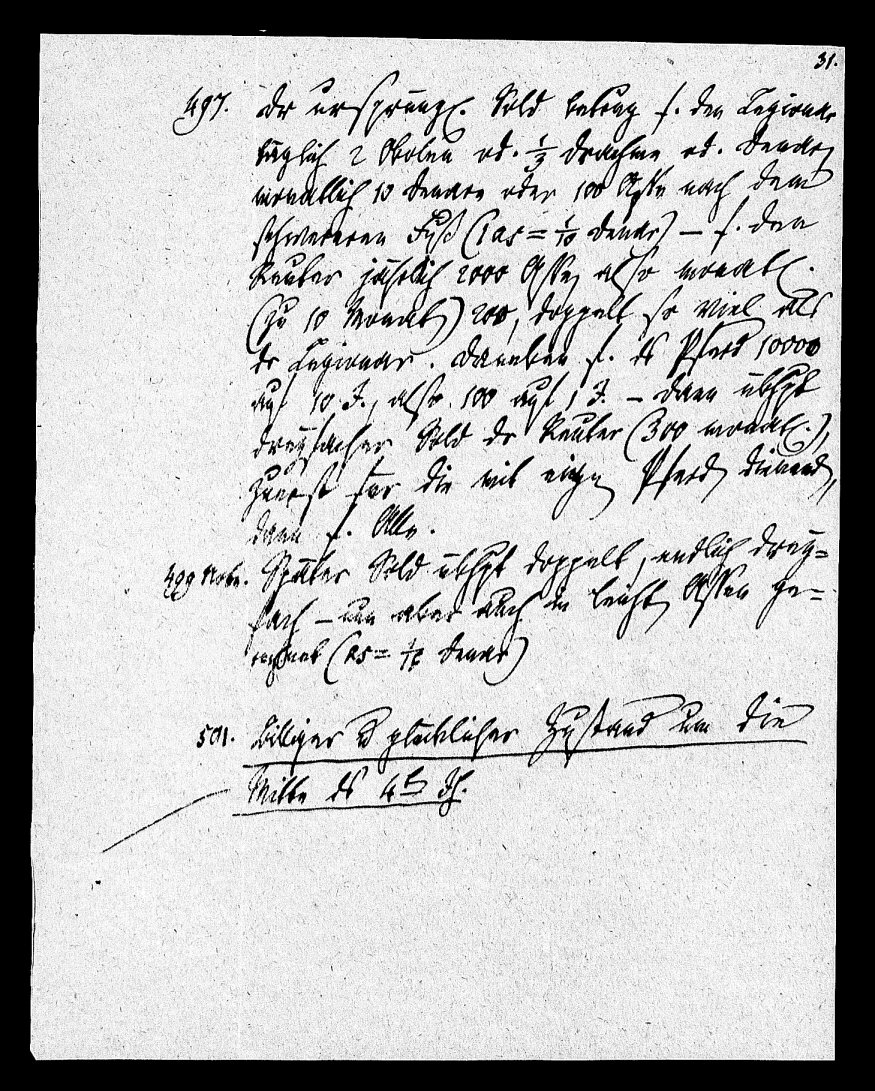 31.
497. Dr ursprüngl. Sold betrug f. den Legionar
täglich 2 Obolen od. 1/3 Drachme od. Denar,
monatlich 10 Denare oder 100 Asse nach dem
schwereren Fuß (1 as = 1/10 Denar) — f. den
Reuter jährlich 2000 Asse, also monatl.
(zu 10 Monat) 200, doppelt so viel als
dr Legionar. Daneben f. ds Pferd 10000
auf 10 J., also 100 auf 1 J. — dann übhpt
dreyfacher Sold dr Reuter (300 monatl.),
zuerst für die mit eigen Pferd dienend,
dann f. Alle.
499 Note. Später Sold übhpt doppelt, endlich drey=
fach — nun aber auch in leicht Assen ge=
rechnet (as = Denar)
501. Billiger u glücklicher Zustand um die
Mitte ds 4t Jh.